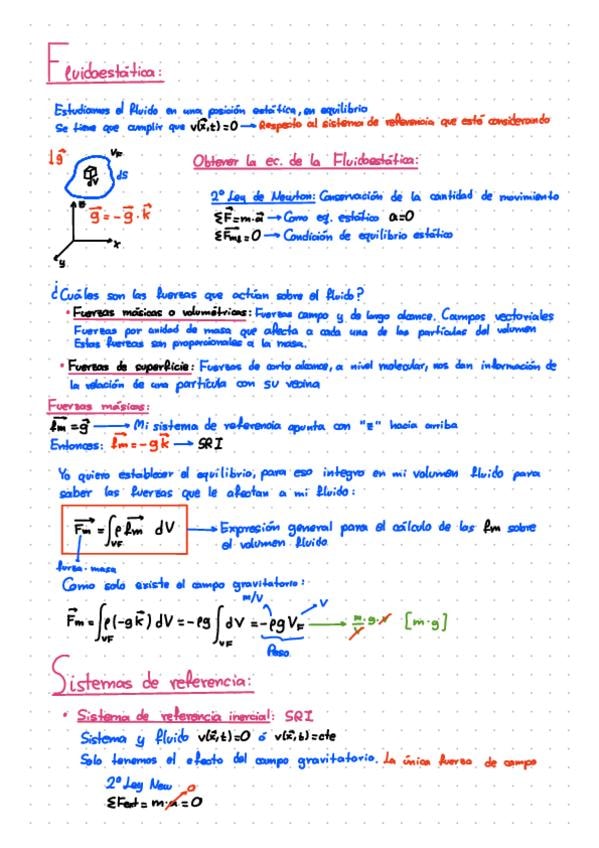 Fluidoestática:
Estudiamos el fluido en una posición estática, en equilibrio
Se tiene que cumplir que v(x⃗,t)=0 → Respecto al sistema de referencia que esté considerando
↓g⃗
V_F
dV
dS
Obtener la ec. de la Fluidoestática:
2º Ley de Newton: Conservación de la cantidad de movimiento
z
g⃗=-g·k⃗
ΣF⃗=m·a⃗ → Como eq. estático a=0
x
y
→ Condición de equilibrio estático
¿Cuáles son las fuerzas que actúan sobre el fluido?
• Fuerzas másicas o volumétricas: Fuerzas campo y de largo alcance. Campos vectoriales
Fuerzas por unidad de masa que afecta a cada una de las partículas del volumen
Estas fuerzas son proporcionales a la masa.
• Fuerzas de superficie: Fuerzas de corto alcance, a nivel molecular, nos dan información de
la relación de una partícula con su vecina
Fuerzas másicas:
f⃗m=g⃗ → Mi sistema de referencia apunta con "z" hacia arriba
Entonces: f⃗m=-gk⃗ → SRI
Yo quiero establecer el equilibrio, para eso integro en mi volumen fluido para
saber las fuerzas que le afectan a mi fluido:
F⃗m=∫_VF ρf⃗m dV → Expresión general para el cálculo de las fm sobre
el volumen fluido.
fuerza·masa
Como solo existe el campo gravitatorio:
m/V
V
F⃗m=∫_VF ρ(-gk⃗)dV=-ρg∫_VF dV=-ρgV_F → m/V·g·V [m·g]
Peso
Sistemas de referencia:
• Sistema de referencia inercial: SRI
Sistema y fluido v(x⃗,t)=0 ó v(x⃗,t)=cte
Solo tenemos el efecto del campo gravitatorio. La única fuerza de campo
2º Ley New
0
ΣFext=m·a=0